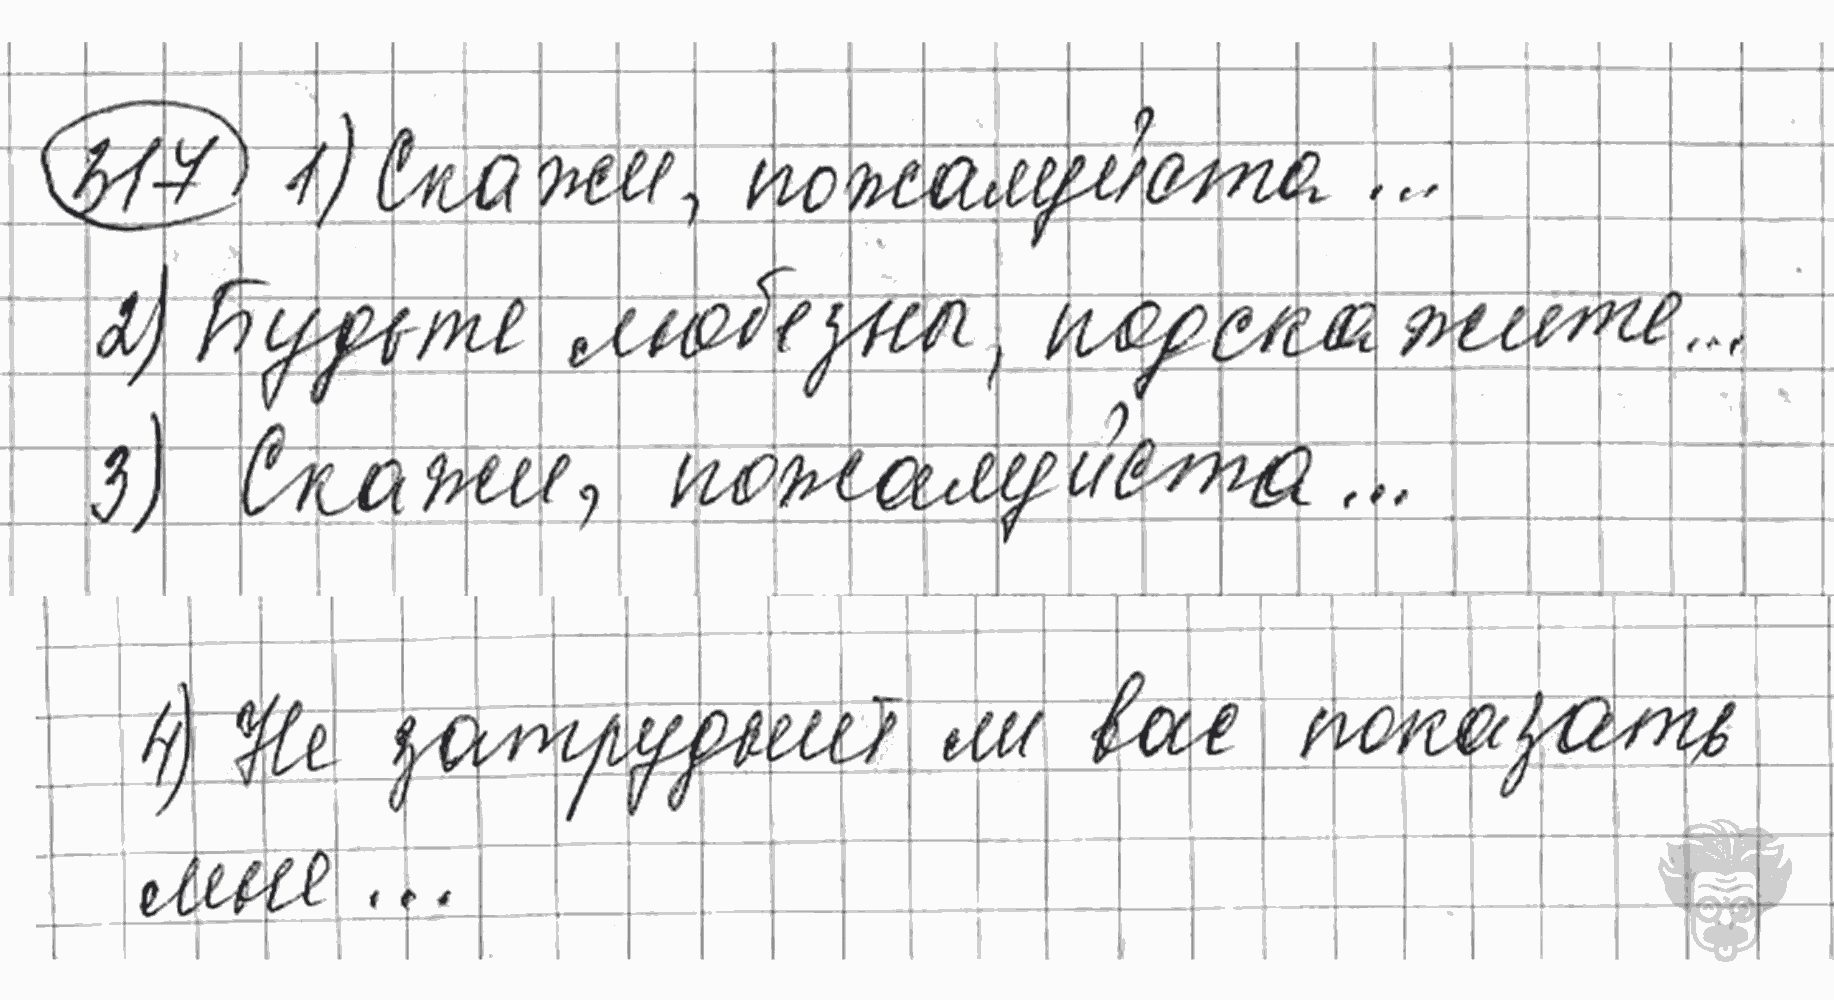 317 1) Скажи, пожалуйста ...
2) Будьте любезны, подскажите...
3) Скажи, пожалуйста ...
4) Не затруднит ли вас показать
мне ...